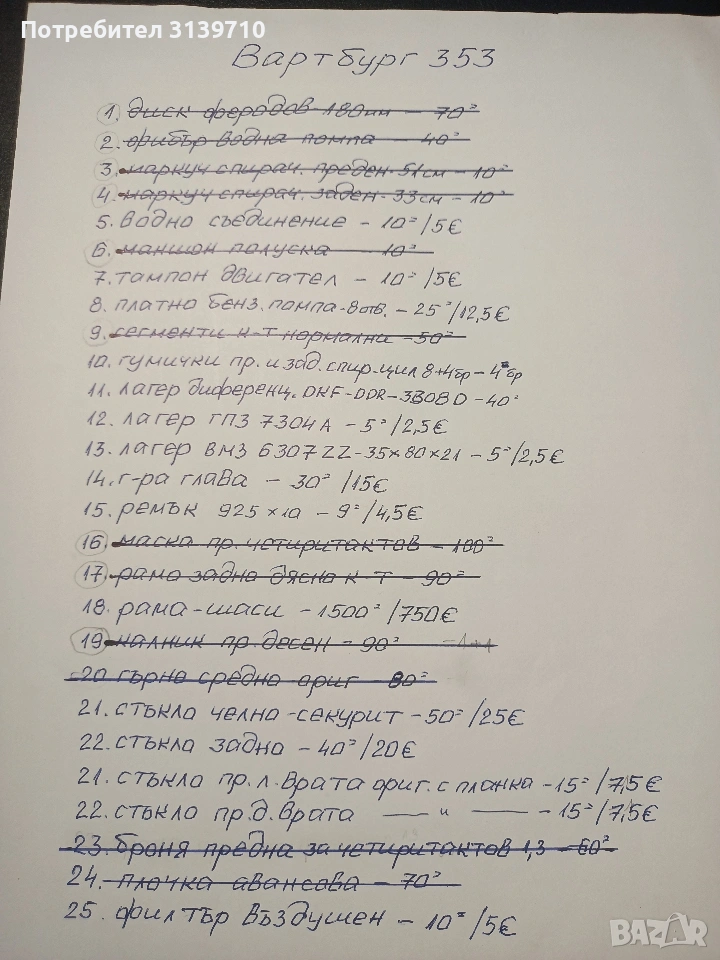 Потребител 3139710
Вартбург 353
1. диск феродов 180мм - 70=
2. фибър водна помпа - 40=
3. маркуч спирач. преден-51см-10=
4. маркуч спирач. заден-33см-10=
5. водно съединение - 10=/5€
6. маншон полуска - 10=
7. тампон двигател - 10=/5€
8. платно бенз. помпа-8отв. - 25=/12,5€
9. сегменти к-т нормални-50=
10. гумички пр. и зад. спир.цил 8+4бр-4=бр
11. лагер диференц. DKF-DDR-3308D-40=
12. лагер ГПЗ 7304А - 5=/2,5€
13. лагер ВМЗ 6307ZZ-35×80×21-5=/2,5€
14. г-ра глава - 30=/15€
15. ремък 925×10 - 9=/4,5€
16. маска пр. четиритактов - 100=
17. рамо задно дясно к-т - 90=
18. рама-шаси - 1500=/750€
19. калник пр. десен - 90=
20 гърне средно ориг - 80=
21. стъкло челно-секурит-50=/25€
22. стъкло задно - 40=/20€
21. стъкло пр. л. врата ориг. с планка-15=/7,5€
22. стъкло пр. д. врата — " — - 15=/7,5€
23. броня предна за четиритактов 1,3 - 60=
24. плочка авансова - 70=
25. филтър въздушен - 10=/5€
BAZAR